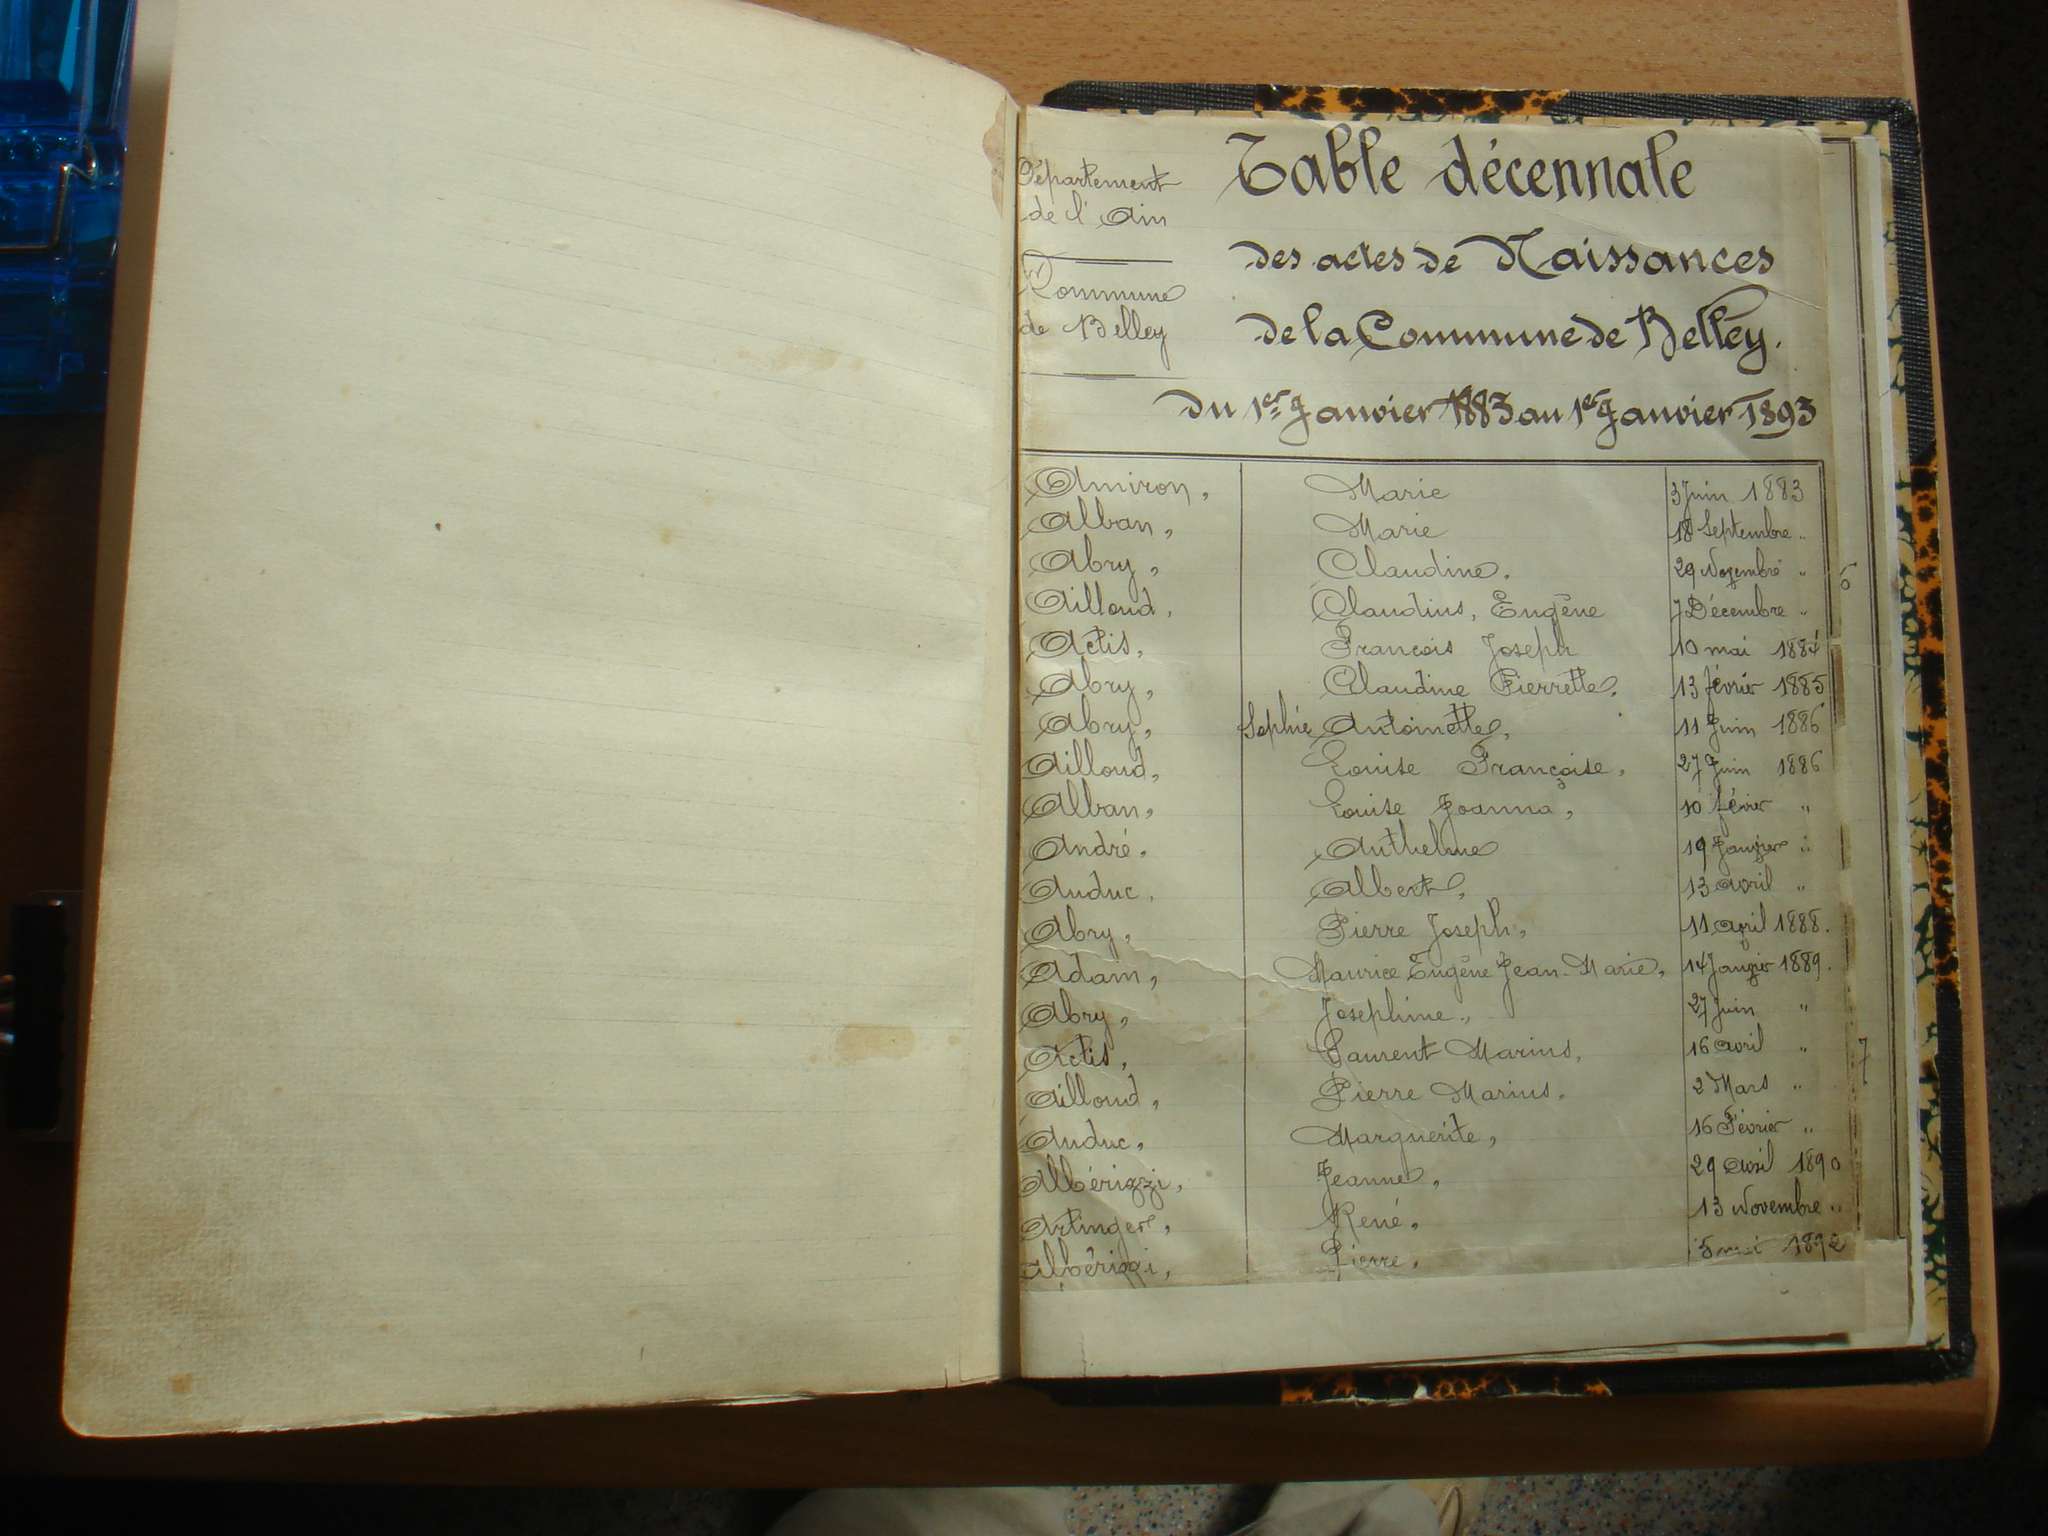 Département
de l'Ain
Commune
de Belley
Table décennale
des actes de Naissances
de la Commune de Belley.
du 1er Janvier 1883 au 1er Janvier 1893
Amiron, Marie 3 Juin 1883
Alban, Marie 18 Septembre "
Abry, Claudine. 29 Novembre "
Ailloud, Claudius, Eugène 7 Décembre "
Actis, François Joseph 10 mai 1884
Abry, Claudine Pierrette, 13 février 1885
Abry, Sophie Antoinette, 11 Juin 1886
Ailloud, Louise Françoise, 27 Juin 1886
Alban, Louise Joanna, 10 février "
André. Anthelme 19 Janvier "
Auduc, Albert, 13 avril "
Abry, Pierre Joseph, 11 avril 1888.
Adam, Maurice Eugène Jean-Marie, 14 Janvier 1889.
Abry, Josephine, 27 Juin "
Actis, Laurent Marius, 16 avril "
Ailloud, Pierre Marius. 2 Mars "
Auduc, Marguerite, 16 Février "
Albérizzi, Jeanne, 29 avril 1890
Artinger, René, 13 Novembre "
Albérizzi, Pierre, mai 1892
6
7